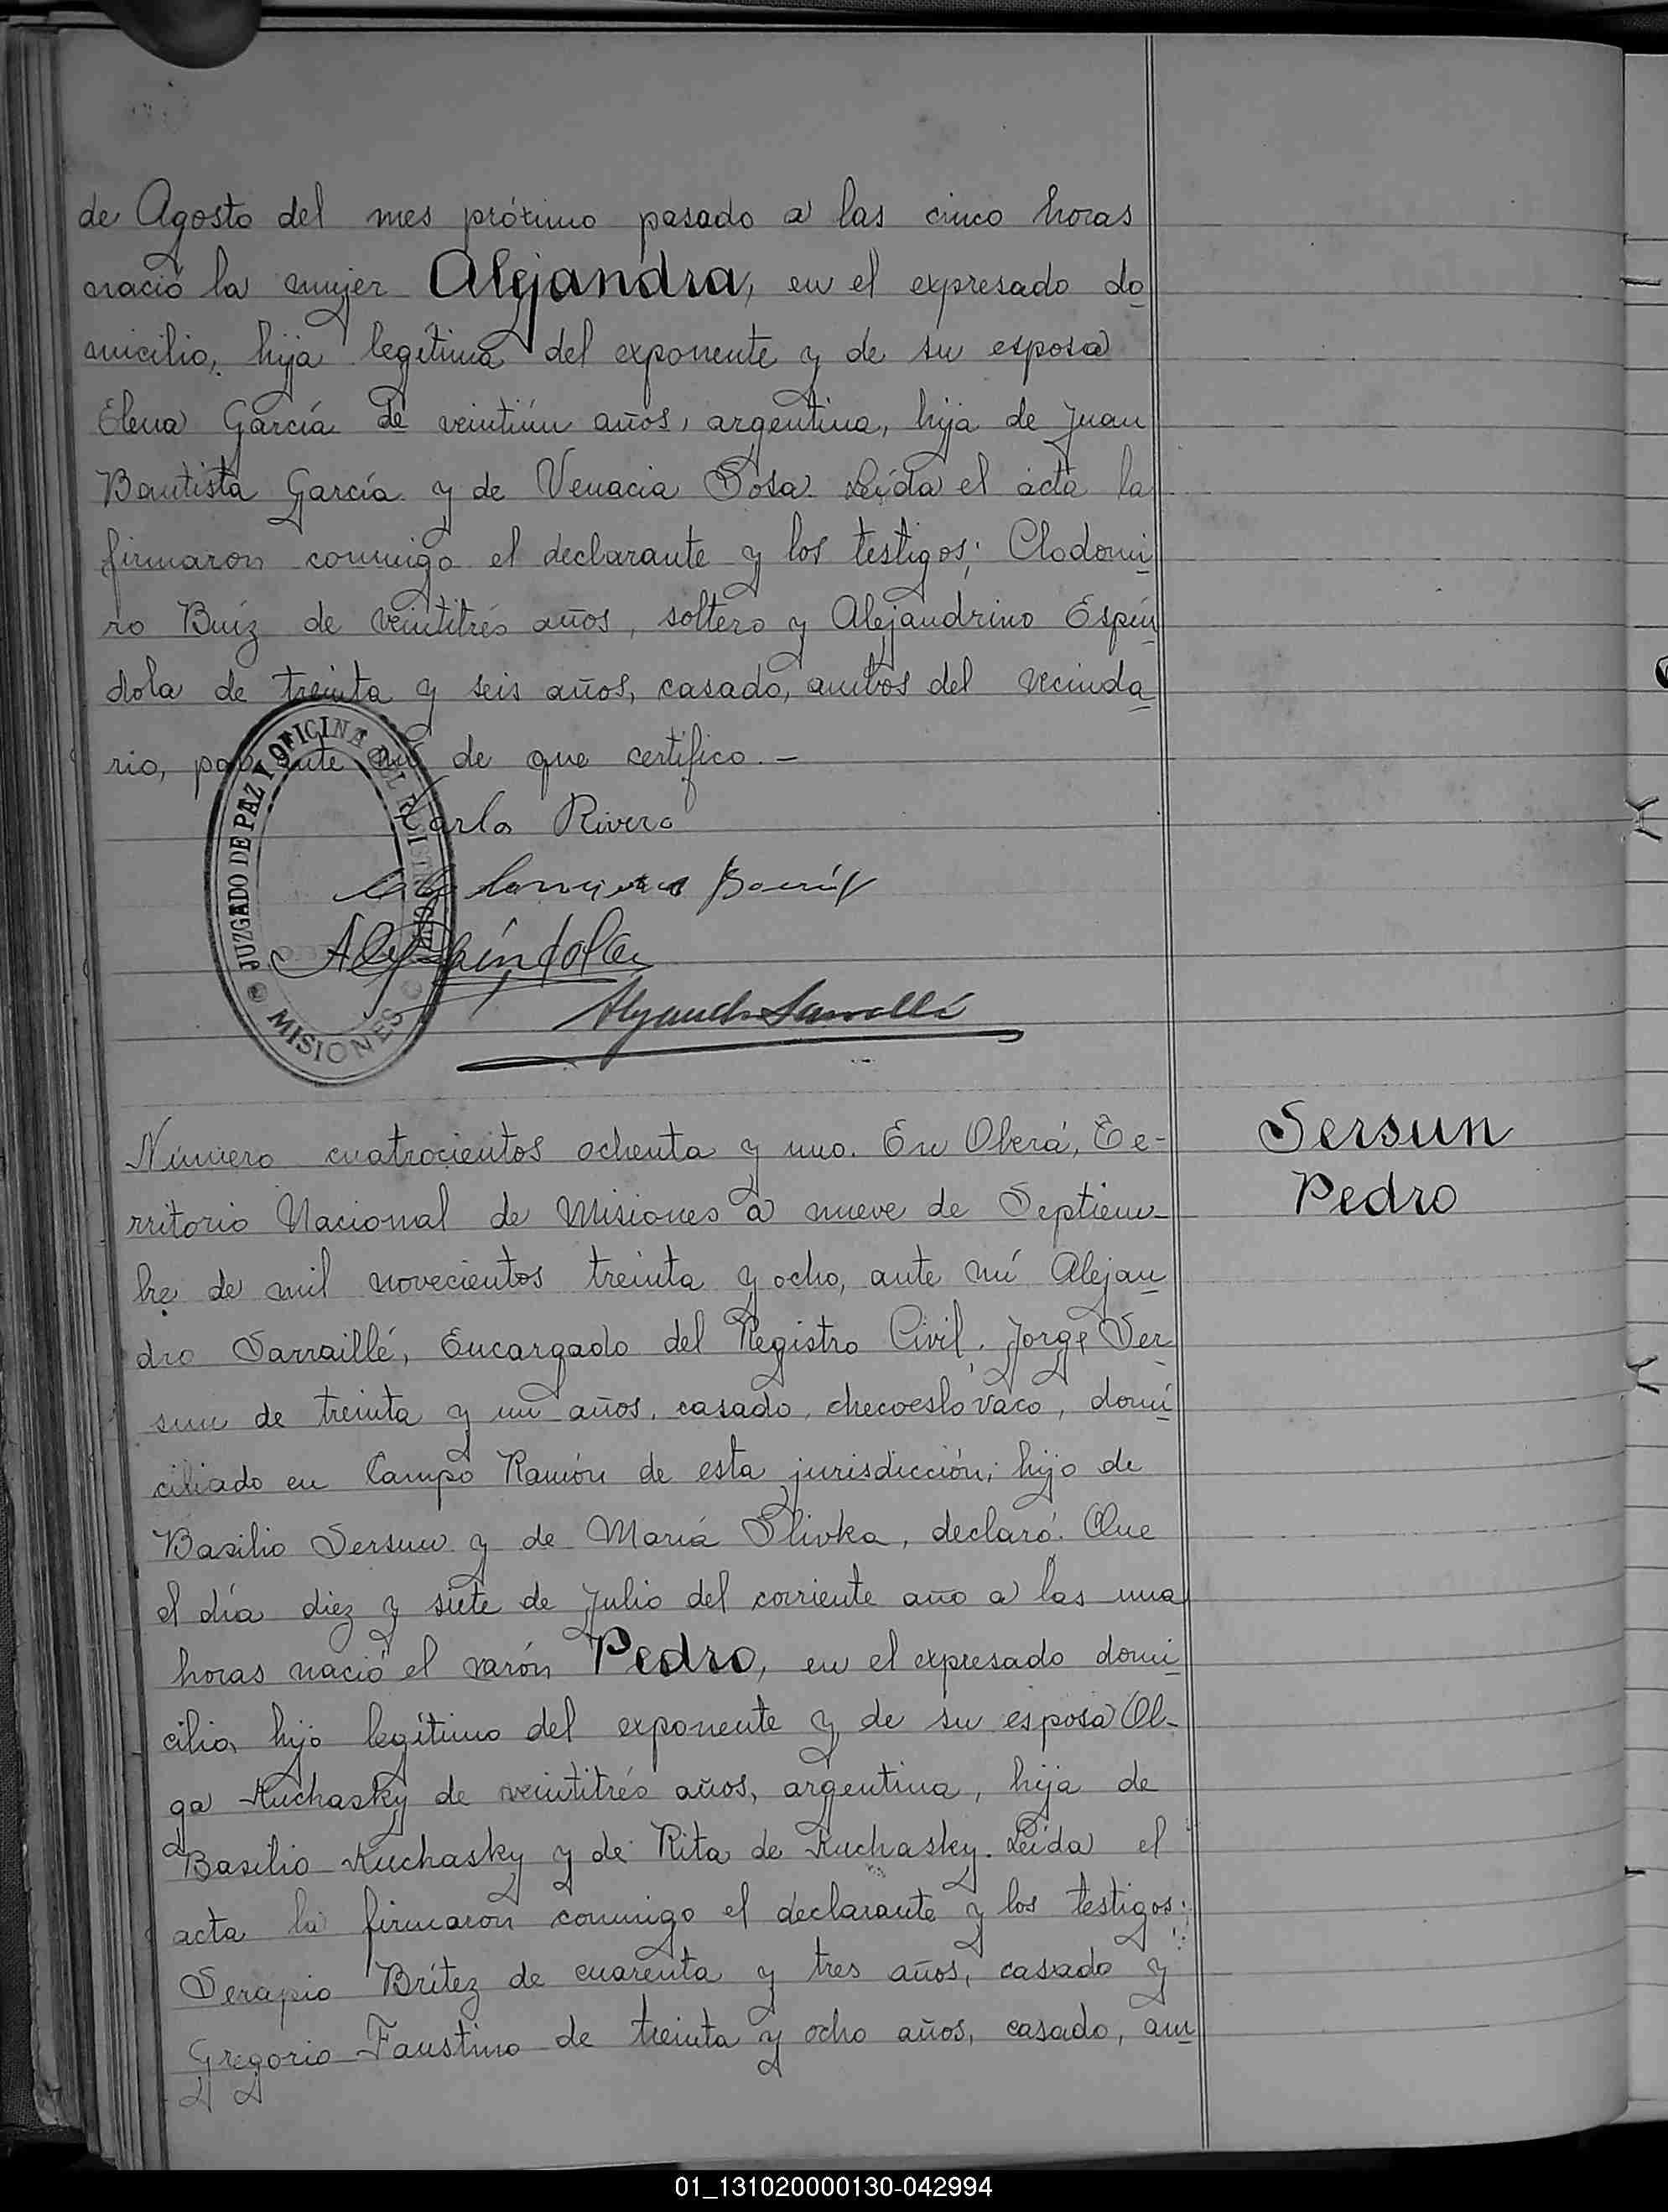 de Agosto del mes próximo pasado a las cinco horas
nació la mujer Alejandra, en el expresado do
micilio, hija legítima del exponente y de su esposa
Elena García de veintiún años, argentina, hija de Juan
Bautista García y de Venacia Sosa. Leída el acta la
firmaron conmigo el declarante y los testigos; Clodomi
ro Buiz de veintitrés años, soltero y Alejandrino Espín
dola de treinta y seis años, casado, ambos del vecinda
rio, por ante mí de que certifico.-
Karlo Rivero
JUZGADO DE PAZ Y OFICINA DEL REGISTRO CIVIL
MISIONES
Número cuatrocientos ochenta y uno. En Oberá, Te-
rritorio Nacional de Misiones a nueve de Septiem-
bre de mil novecientos treinta y ocho, ante mí Alejan
dro Sarraillé, Encargado del Registro Civil. Jorge Ser
sun de treinta y un años, casado, checoeslovaco, domi
ciliado en Campo Ramón de esta jurisdicción; hijo de
Basilio Sersun y de María Slivka, declaró. Que
el día diez y siete de Julio del corriente año a las una
horas nació el varón Pedro, en el expresado domi
cilio, hijo legítimo del exponente y de su esposa Ol-
ga Kuchasky de veintitrés años, argentina, hija de
Basilio Kuchasky y de Rita de Kuchasky. Leída el
acta la firmaron conmigo el declarante y los testigos:
Serapio Brítez de cuarenta y tres años, casado y
Gregorio Faustino de treinta y ocho años, casado, am
Sersun
Pedro
01_131020000130-042994